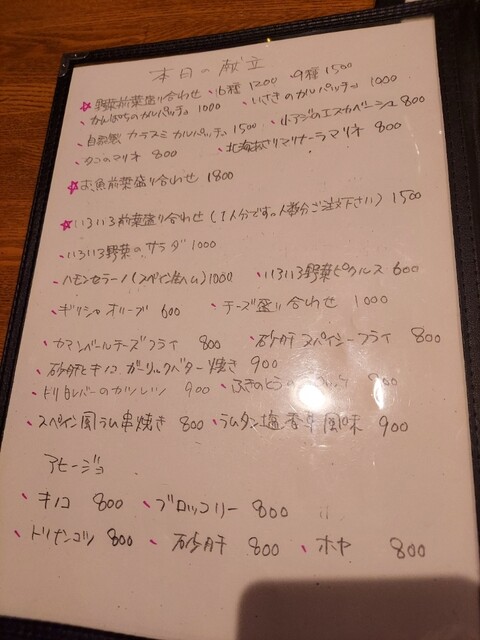 本日の献立
☆野菜前菜盛り合わせ 6種 1200 9種 1500
、かんぱちのカルパッチョ 1000 、いさきのカルパッチョ 1000
、自家製 カラスミ カルパッチョ 1500 、小アジのエスカベーシュ 800
、タコのマリネ 800 、北海 マリネ 800
☆お魚前菜盛り合わせ 1800
☆いろいろ前菜盛り合わせ (1人分です。人数分ご注文下さい) 1500
、いろいろ野菜のサラダ 1000
、ハモンセラーノ(スペイン産ハム) 1000 、いろいろ野菜ピクルス 600
、ギリシャオリーブ 600 、チーズ盛り合わせ 1000
、カマンベールチーズフライ 800 、砂肝スパイシーフライ 800
、砂肝とキノコ ガーリックバター焼き 900
、トリ白レバーのカツレツ 900 、ふきのとうの
、スペイン風ラム串焼き 800 、ラムタン塩香草風味 900
アヒージョ
、キノコ 800 、ブロッコリー 800
、トリナンコツ 800 、砂肝 800 、ホヤ 800